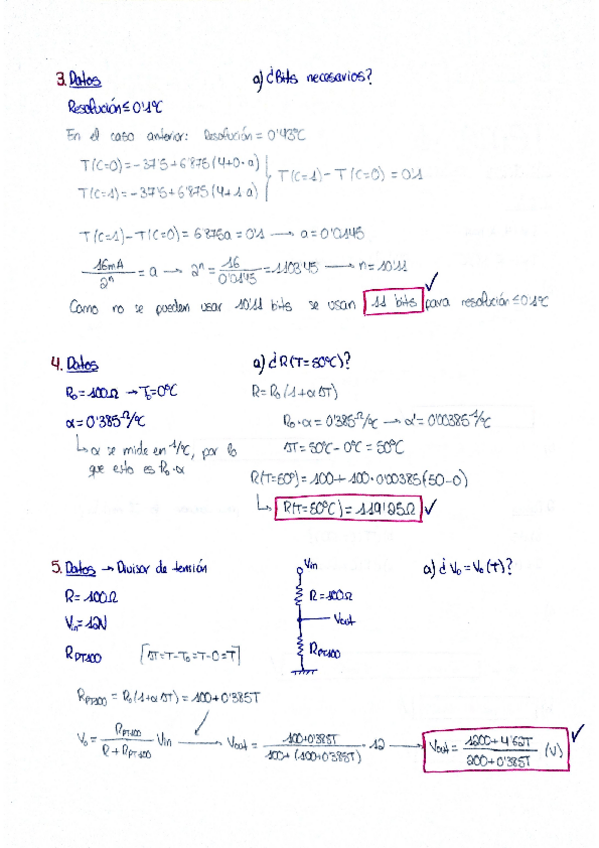 3. Datos a) ¿Bits necesarios?
Resolución ≤ 0'1ºC
En el caso anterior: Resolución = 0'43ºC
T(C=0) = -37'5 + 6'875(4+0·a)
T(C=1) = -37'5 + 6'875(4+1·a)
T(C=1) - T(C=0) = 0'1
T(C=1) - T(C=0) = 6'875a = 0'1 → a = 0'0145
16mA / 2ⁿ = a → 2ⁿ = 16 / 0'0145 = 1103'45 → n = 10'11
Como no se pueden usar 10'11 bits se usan 11 bits para resolución ≤ 0'1ºC
4. Datos a) ¿R(T=50ºC)?
R₀ = 100Ω → T₀ = 0ºC R = R₀(1+αΔT)
α = 0'385 Ω/ºC R₀·α = 0'385 Ω/ºC → α' = 0'00385 1/ºC
↳ α se mide en 1/ºC, por lo ΔT = 50ºC - 0ºC = 50ºC
que esto es R₀·α
R(T=50º) = 100 + 100·0'00385(50-0)
↳ R(T=50ºC) = 119'25Ω
5. Datos → Divisor de tensión Vin a) ¿V₀ = V₀(T)?
R = 100Ω R = 100Ω
Vin = 12V Vout
R_PT100 [ΔT = T - T₀ = T - 0 = T] R_PT100
R_PT100 = R₀(1+αΔT) = 100 + 0'385T
V₀ = R_PT100 / (R + R_PT100) Vin → Vout = (100+0'385T) / (100+(100+0'385T)) · 12 → Vout = (1200+4'62T) / (200+0'385T) (V)